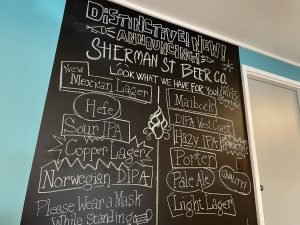 DISTINCTIVE! NEW!
ANNOUNCING!
SHERMAN ST BEER CO.
LOOK WHAT WE HAVE FOR YOU!
New
Mexican Lager
Hefe
Sour IPA
Copper Lager
Norwegian DIPA
Please Wear a Mask
While Standing
Maibock
DIPA West Coast
Hazy IPA
Porter
Pale Ale
QUALITY!
Light Lager